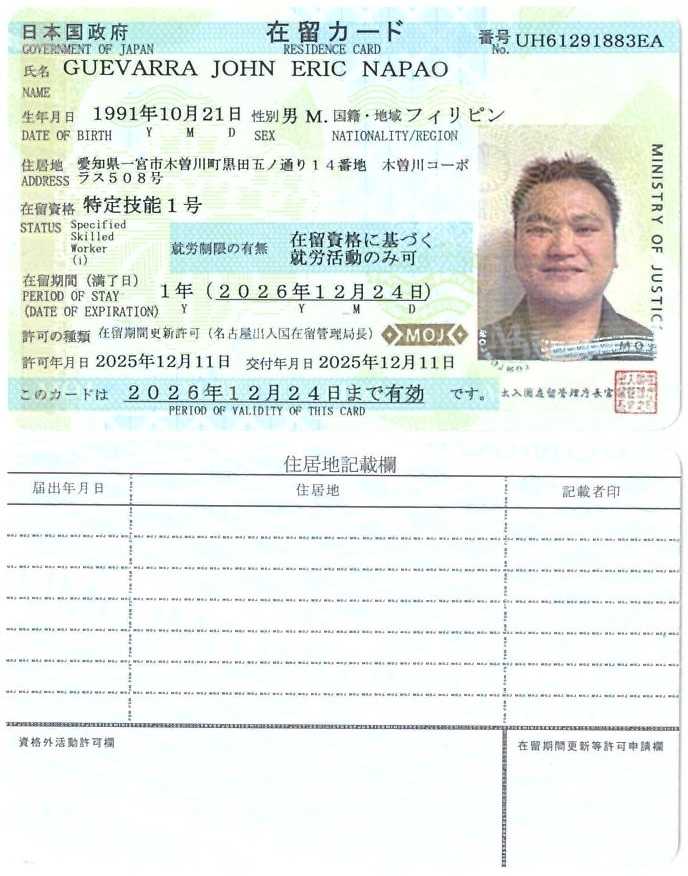 日本国政府
GOVERNMENT OF JAPAN
在留カード
RESIDENCE CARD
番号 UH61291883EA
No.
氏名 GUEVARRA JOHN ERIC NAPAO
NAME
生年月日 1991年10月21日 性別 男 M. 国籍・地域 フィリピン
DATE OF BIRTH Y M D SEX NATIONALITY/REGION
住居地 愛知県一宮市木曽川町黒田五ノ通り14番地 木曽川コーポ
ADDRESS ラス508号
在留資格 特定技能1号
STATUS Specified
Skilled
Worker
(i)
就労制限の有無 在留資格に基づく
就労活動のみ可
在留期間(満了日) 1年(2026年12月24日)
PERIOD OF STAY
(DATE OF EXPIRATION) Y Y M D
許可の種類 在留期間更新許可(名古屋出入国在留管理局長) MOJ
許可年月日 2025年12月11日 交付年月日 2025年12月11日
このカードは 2026年12月24日まで有効 です。
PERIOD OF VALIDITY OF THIS CARD
MINISTRY OF JUSTICE
MOJ
入国在留管理庁長官
住居地記載欄
届出年月日 住居地 記載者印
資格外活動許可欄 在留期間更新等許可申請欄